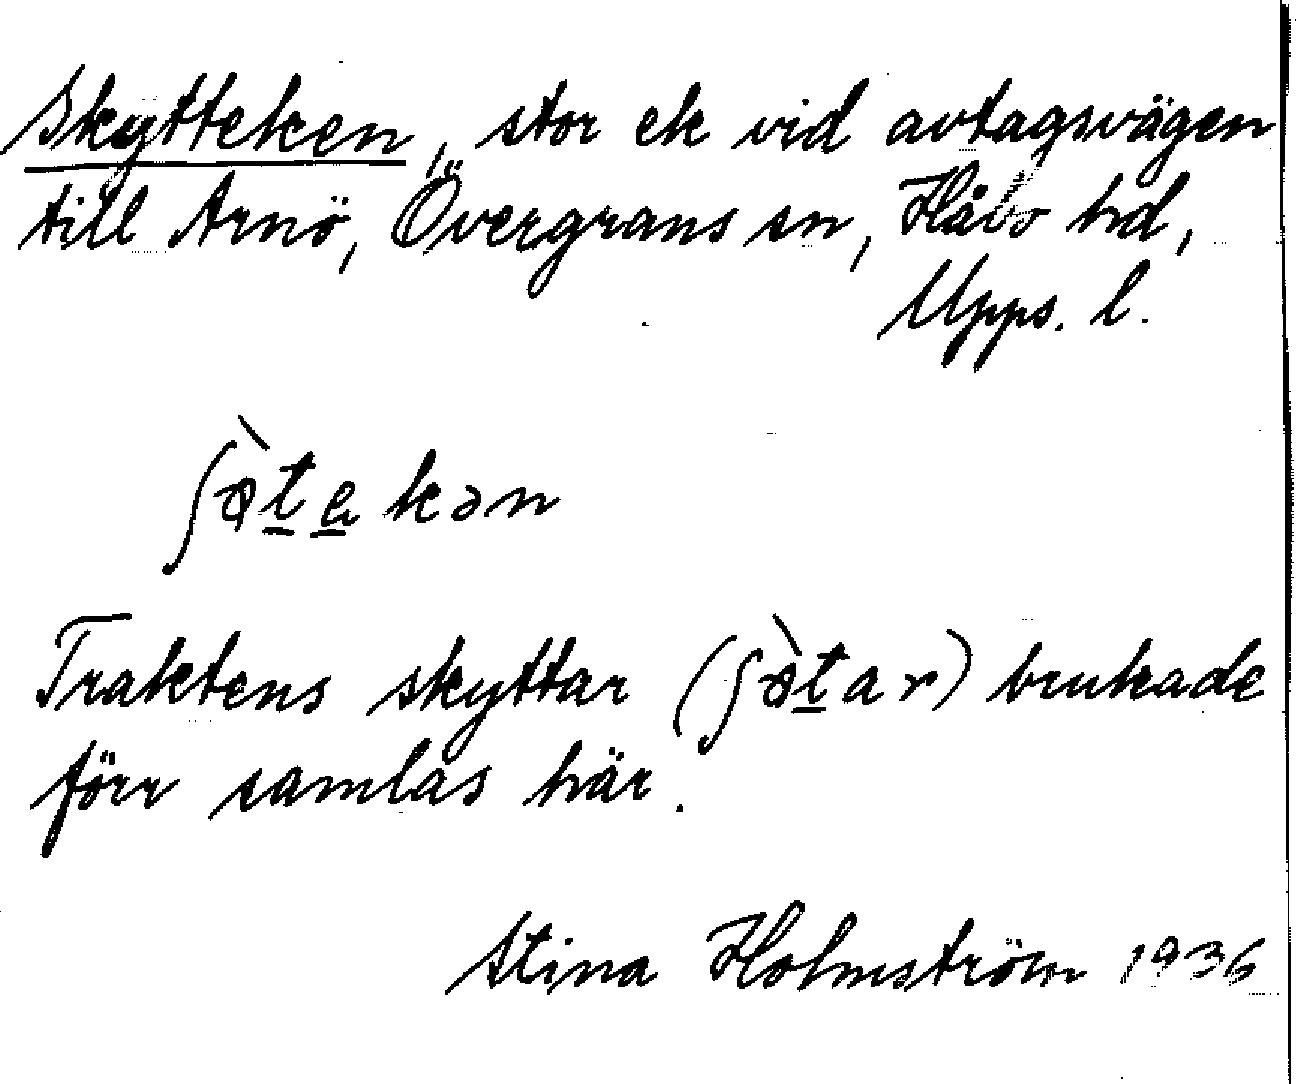 Skytteken, stor ek vid avtagsvägen
till Arnö, Övergrans sn, Håbo hd,
Upps. l.
ʃø̀tekən
Traktens skyttar (ʃø̀tar) brukade
förr samlas här.
Stina Holmström 1936